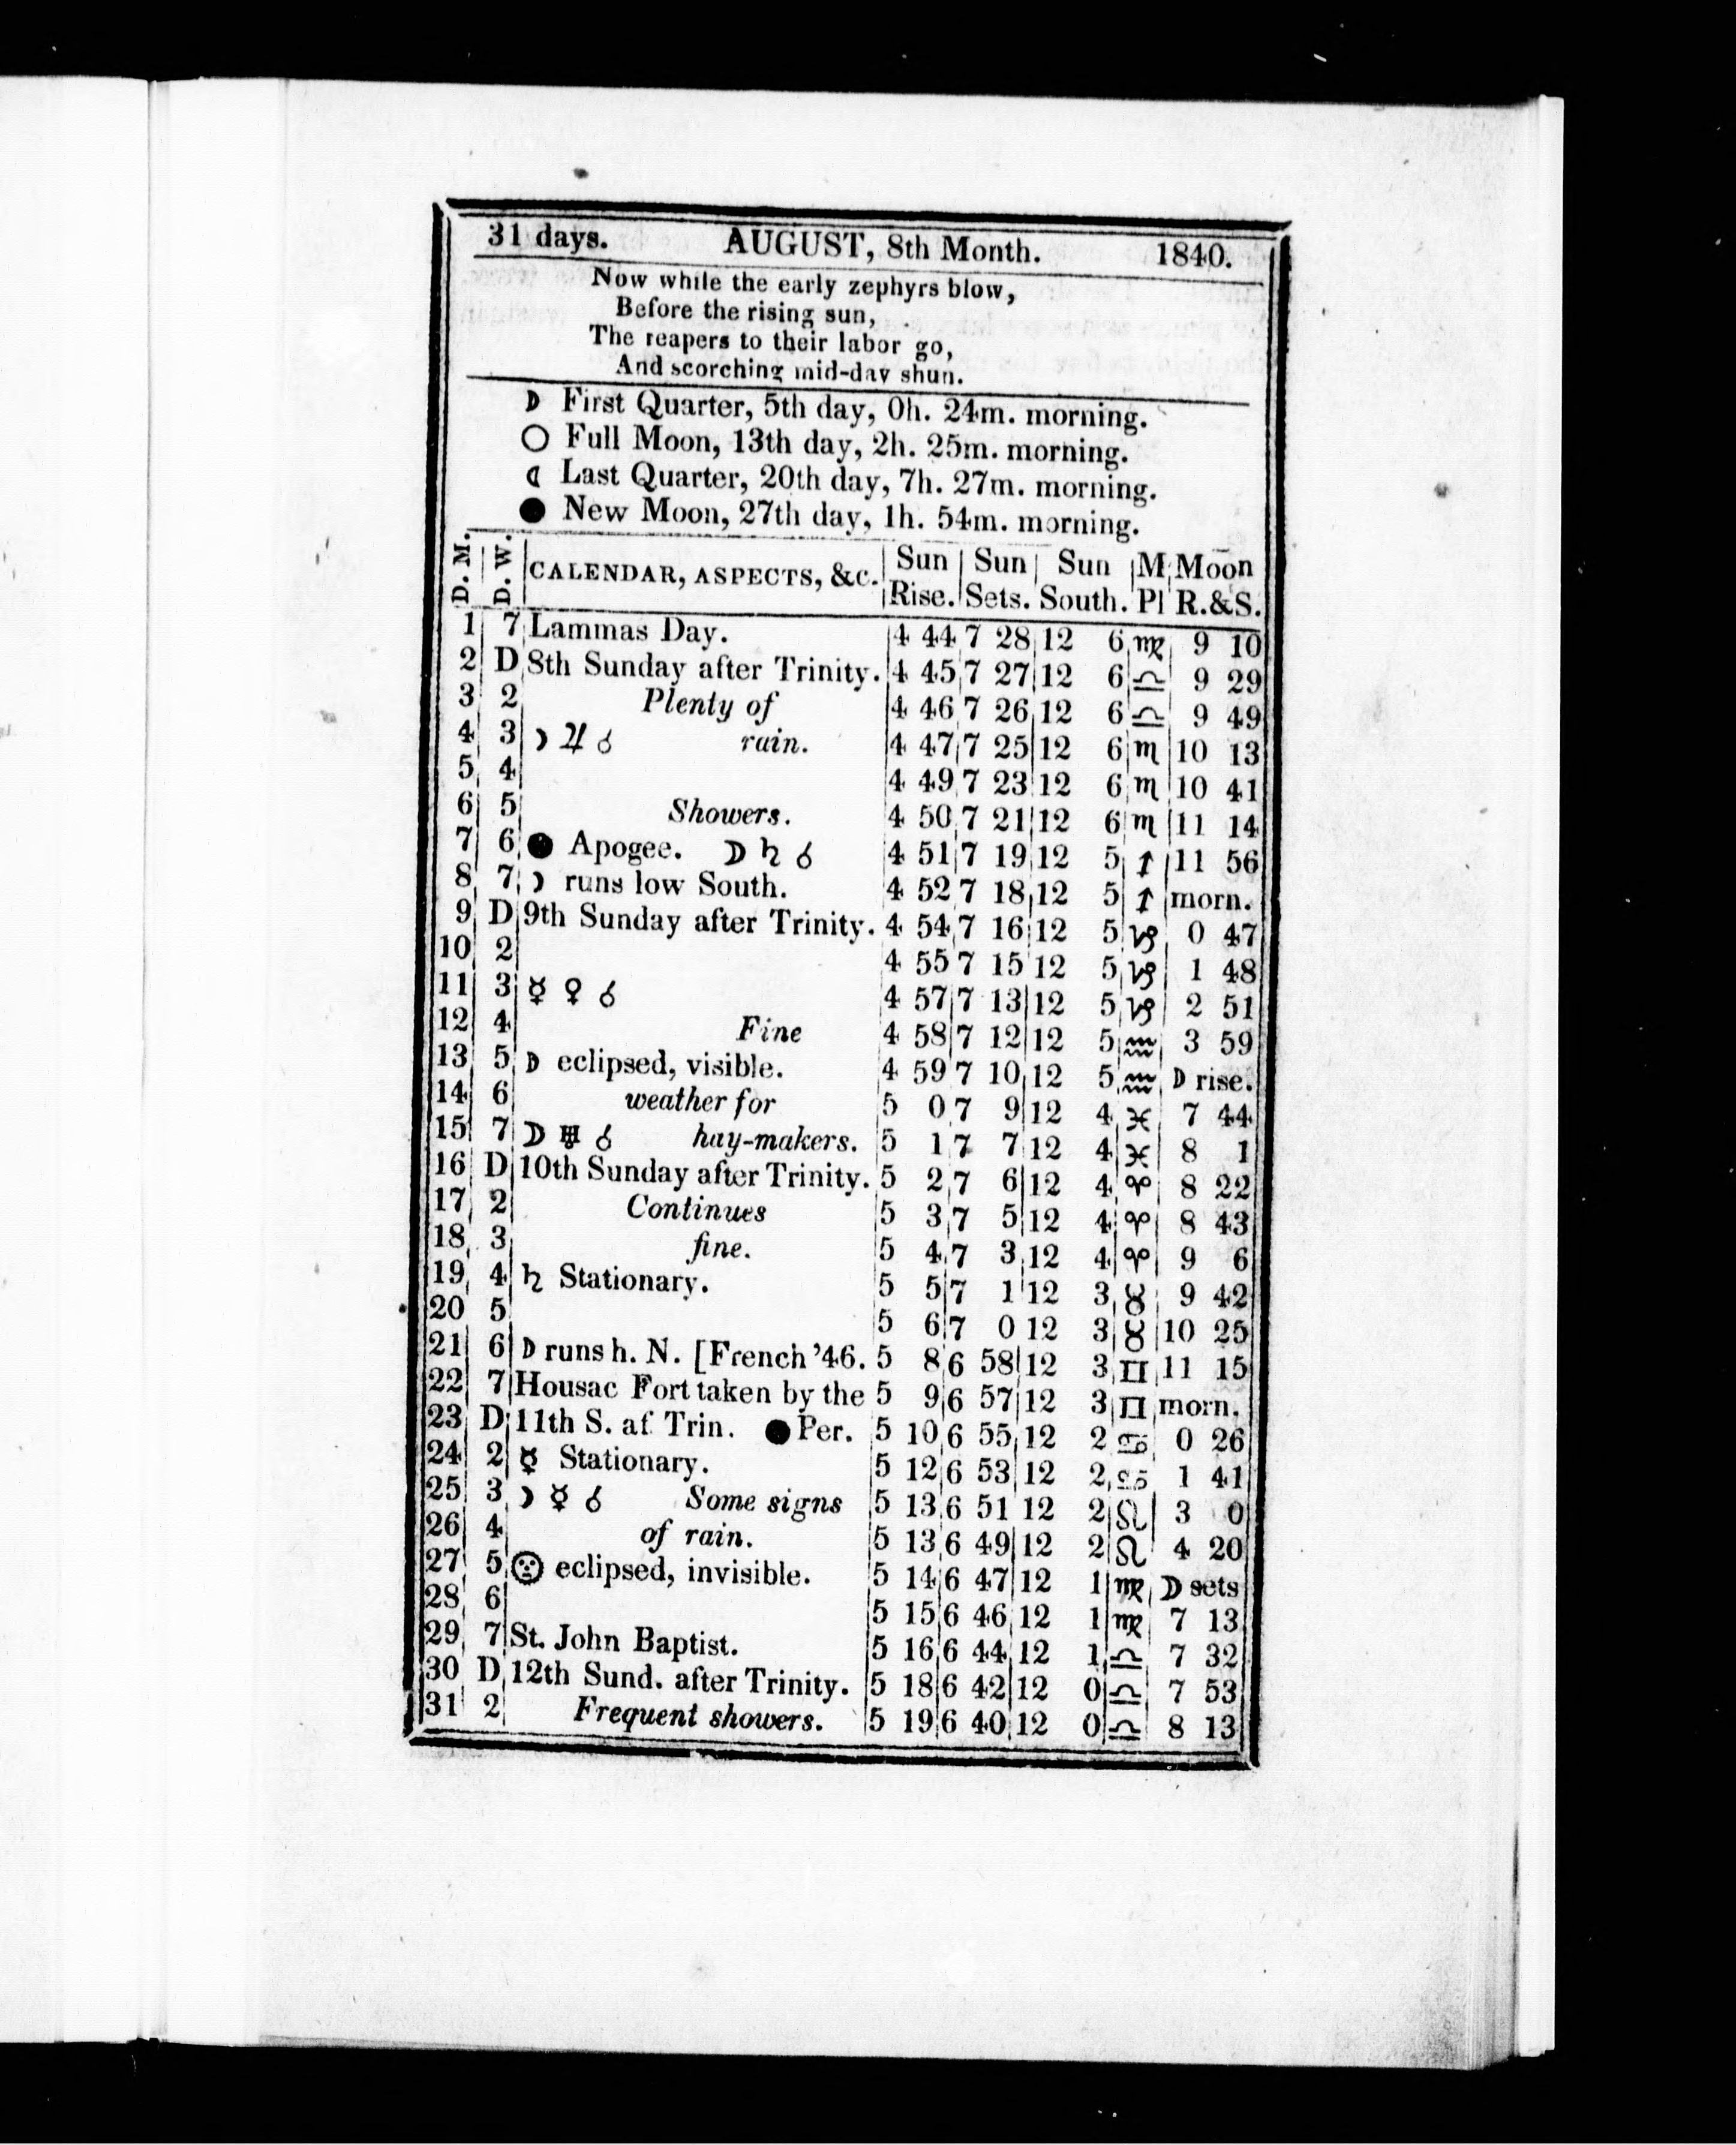 31 days. AUGUST, 8th Month. 1840.
Now while the early zephyrs blow,
Before the rising sun,
The reapers to their labor go,
And scorching mid-day shun.
☽ First Quarter, 5th day, 0h. 24m. morning.
○ Full Moon, 13th day, 2h. 25m. morning.
☾ Last Quarter, 20th day, 7h. 27m. morning.
● New Moon, 27th day, 1h. 54m. morning.
D. M. D. W. CALENDAR, ASPECTS, &c. Sun Rise. Sun Sets. Sun South. M Pl Moon R.&S.
1 7 Lammas Day. 4 44 7 28 12 6 ♍ 9 10
2 D 8th Sunday after Trinity. 4 45 7 27 12 6 ♎ 9 29
3 2 Plenty of 4 46 7 26 12 6 ♎ 9 49
4 3 ☽ ♃ ☌ rain. 4 47 7 25 12 6 ♏ 10 13
5 4 4 49 7 23 12 6 ♏ 10 41
6 5 Showers. 4 50 7 21 12 6 ♏ 11 14
7 6 ● Apogee. ☽ ♄ ☌ 4 51 7 19 12 5 ♐ 11 56
8 7 ☽ runs low South. 4 52 7 18 12 5 ♐ morn.
9 D 9th Sunday after Trinity. 4 54 7 16 12 5 ♑ 0 47
10 2 4 55 7 15 12 5 ♑ 1 48
11 3 ☿ ♀ ☌ 4 57 7 13 12 5 ♑ 2 51
12 4 Fine 4 58 7 12 12 5 ♒ 3 59
13 5 ☽ eclipsed, visible. 4 59 7 10 12 5 ♒ ☽ rise.
14 6 weather for 5 0 7 9 12 4 ♓ 7 44
15 7 ☽ ♅ ☌ hay-makers. 5 1 7 7 12 4 ♓ 8 1
16 D 10th Sunday after Trinity. 5 2 7 6 12 4 ♈ 8 22
17 2 Continues 5 3 7 5 12 4 ♈ 8 43
18 3 fine. 5 4 7 3 12 4 ♈ 9 6
19 4 ♄ Stationary. 5 5 7 1 12 3 ♉ 9 42
20 5 5 6 7 0 12 3 ♉ 10 25
21 6 ☽ runs h. N. [French '46. 5 8 6 58 12 3 ♊ 11 15
22 7 Housac Fort taken by the 5 9 6 57 12 3 ♊ morn.
23 D 11th S. af Trin. ● Per. 5 10 6 55 12 2 ♋ 0 26
24 2 ☿ Stationary. 5 12 6 53 12 2 ♋ 1 41
25 3 ☽ ☿ ☌ Some signs 5 13 6 51 12 2 ♌ 3 0
26 4 of rain. 5 13 6 49 12 2 ♌ 4 20
27 5 🌞 eclipsed, invisible. 5 14 6 47 12 1 ♍ ☽ sets
28 6 5 15 6 46 12 1 ♍ 7 13
29 7 St. John Baptist. 5 16 6 44 12 1 ♎ 7 32
30 D 12th Sund. after Trinity. 5 18 6 42 12 0 ♎ 7 53
31 2 Frequent showers. 5 19 6 40 12 0 ♎ 8 13